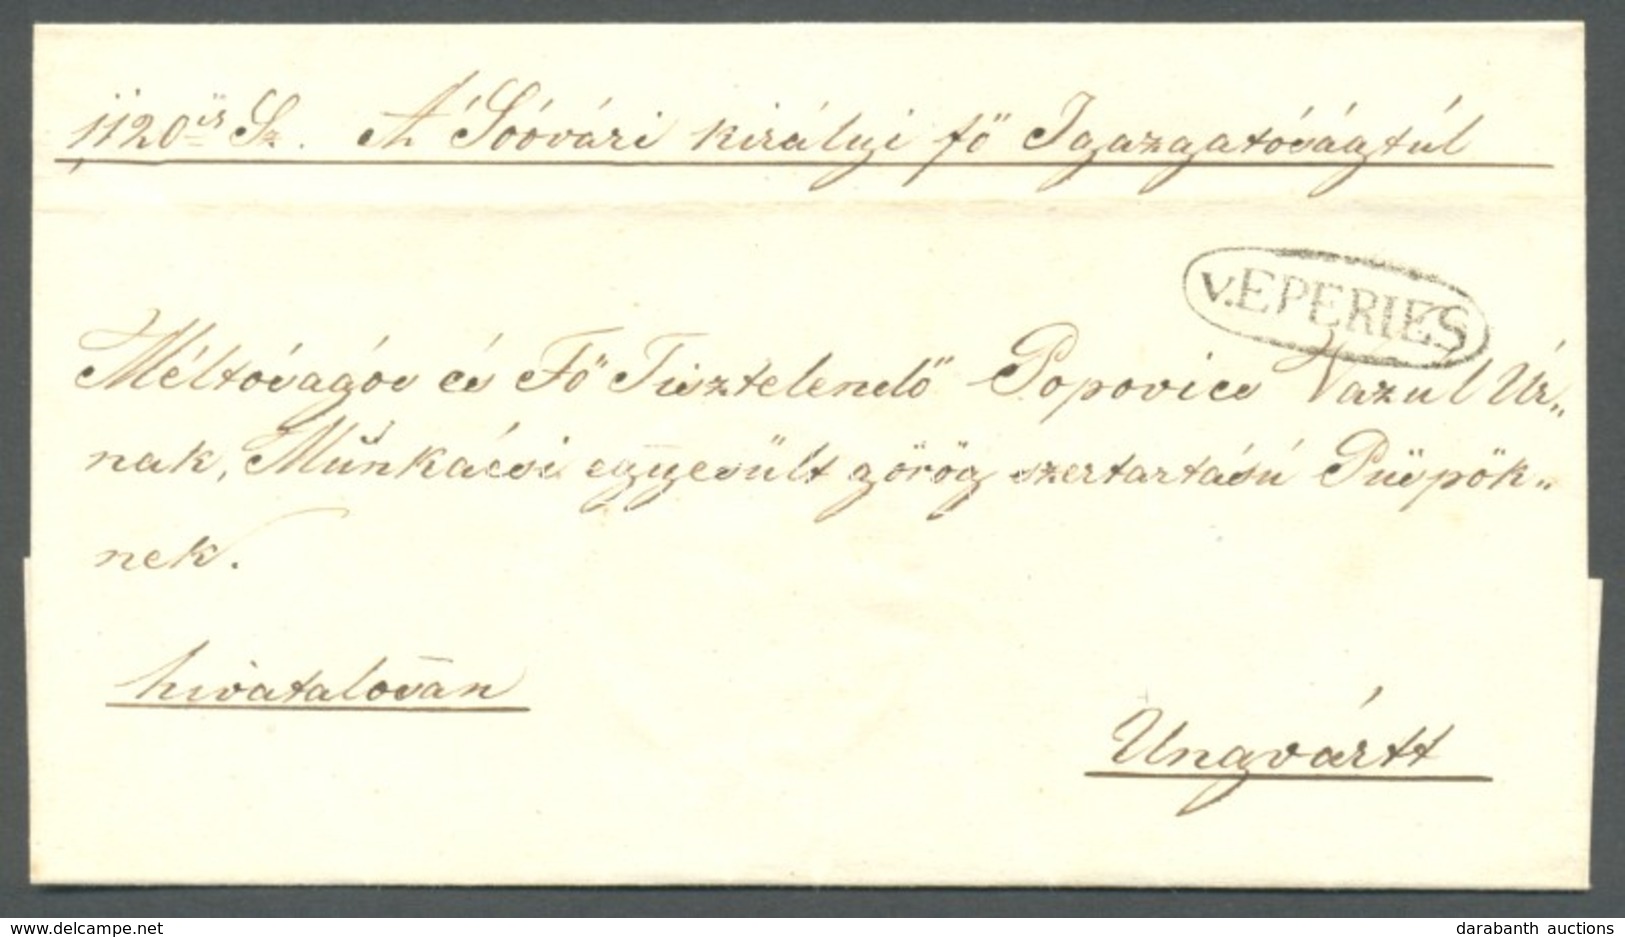 1120ik Sz. A' Sóóvári királyi fő Igazgatóságtúl
v.EPERIES
Méltóságos és Fő Tisztelendő Popovics Vazul Úr„
nak, Munkácsi egyesült görög szertartású Püspök„
nek.
hivatalossan
Ungvártt
delcampe.net
darabanth auctions